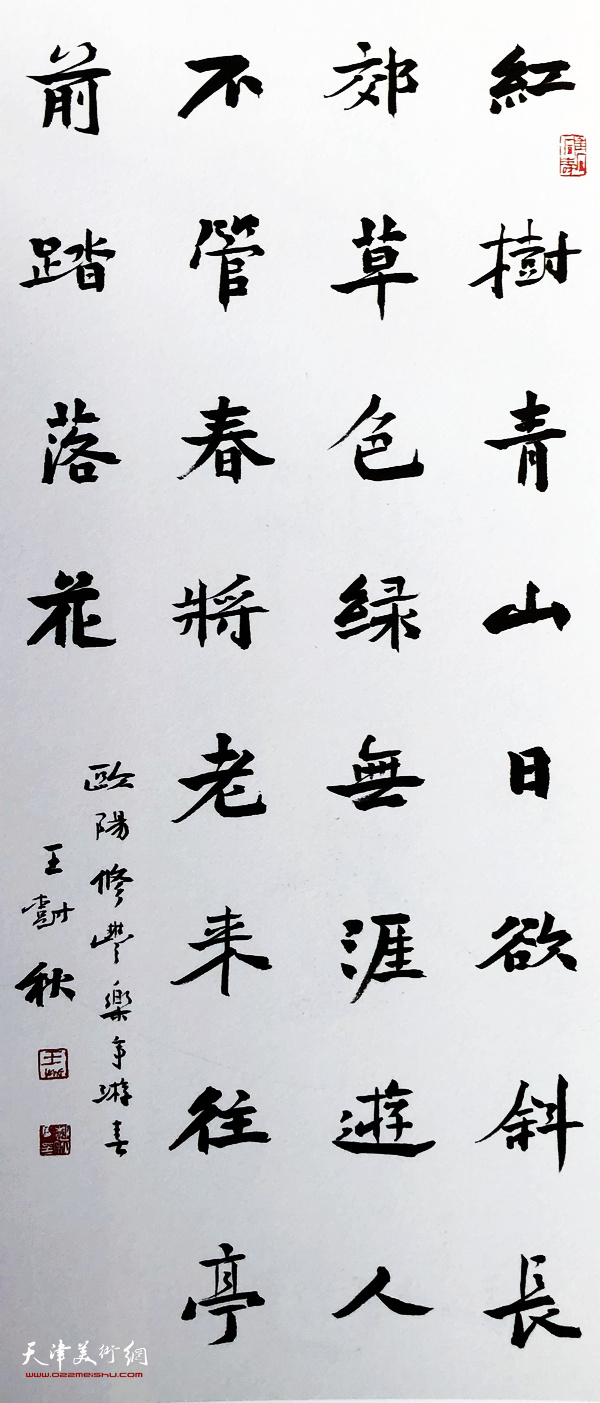 紅樹青山日欲斜長
郊草色绿無涯遊人
不管春將老来往亭
前踏落花
歐陽修豐樂亭游春
王樹秋
天津美術網
www.022meishu.com